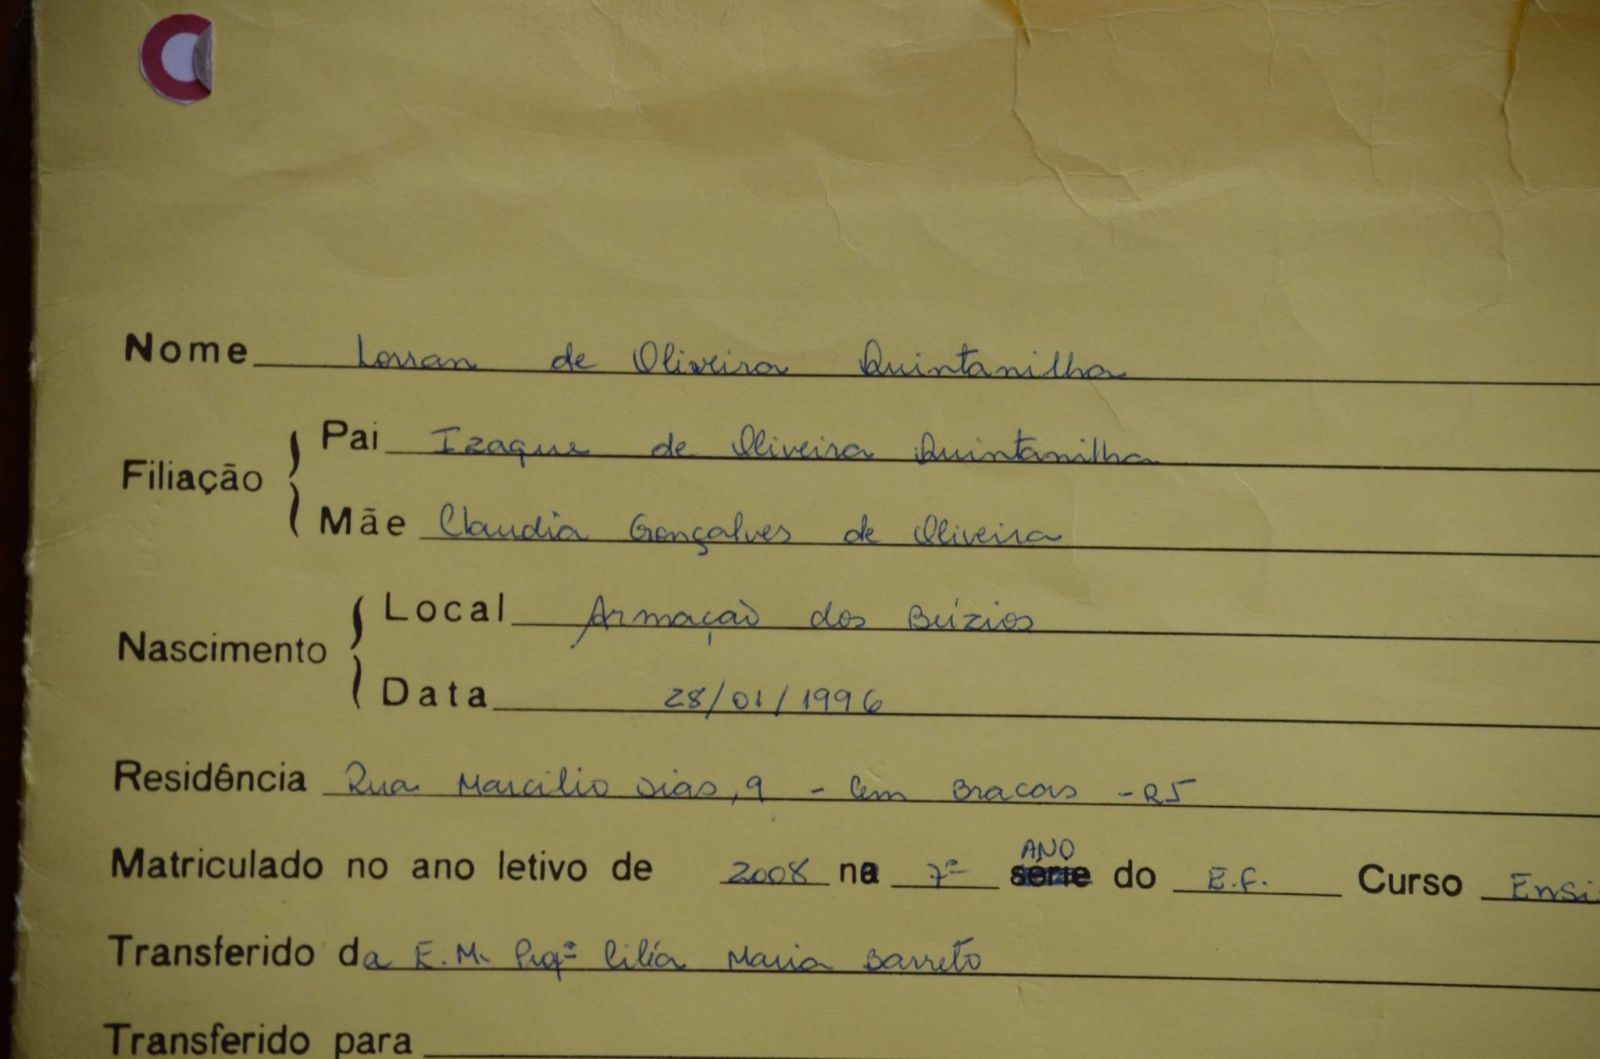 Nome Lorran de Oliveira Quintanilha
Filiação
Pai Izaque de Oliveira Quintanilha
Mãe Claudia Gonçalves de Oliveira
Nascimento
Local Armação dos Búzios
Data 28/01/1996
Residência Rua Marcilio Dias, 9 - Cem Bracas - RJ
ANO
Matriculado no ano letivo de 2008 na 7º série do E.F. Curso Ensi
Transferido da E.M. Profª Ciléa Maria Barreto
Transferido para